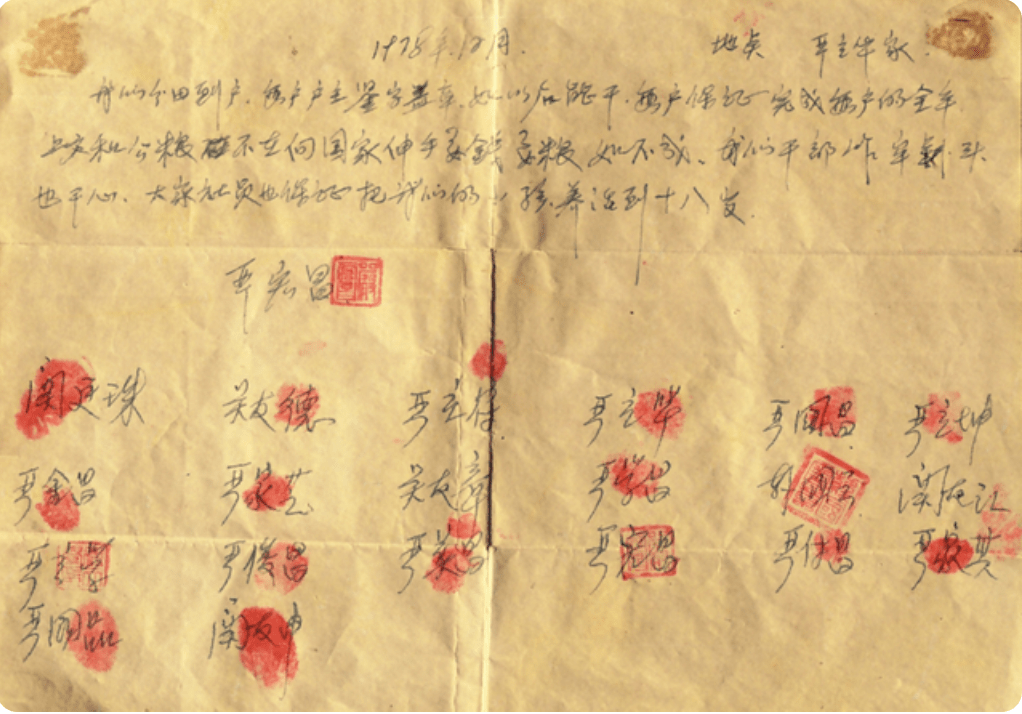 1978年12月. 地点 严立华家.
我们分田到户. 每户户主签字盖章. 如以后能干. 每户保证完成每户的全年
上交和公粮 不在向国家伸手要钱要粮 如不成、我们干部作牢 头
也干心、大家社员也保证把我们的小孩养活到十八岁.
严宏昌
关廷珠 关友德 严立符 严立华 严国昌 严立坤
严金昌 严家芝 关友章 严学昌 韩国云 关友江
严立学 严俊昌 严美昌 严宏昌 严付昌 严家其
严国品 关友申